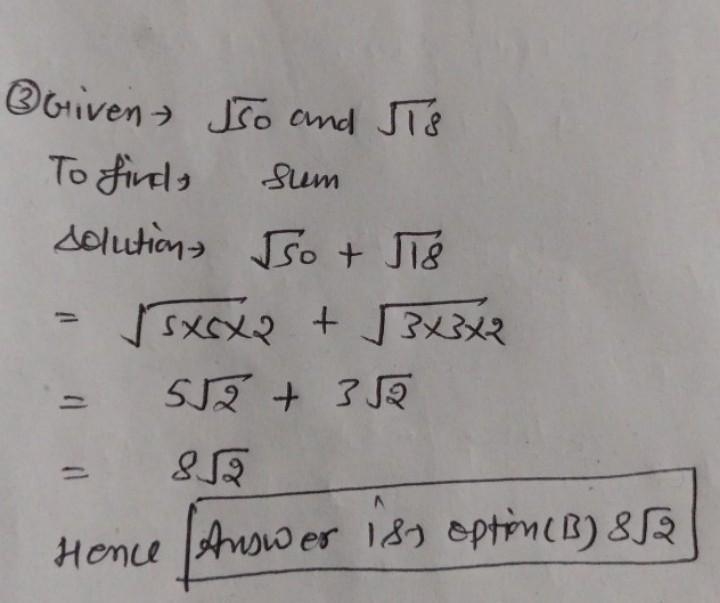 ③ Given → √50 and √18
To find → Sum
Solution → √50 + √18
= √5×5×2 + √3×3×2
= 5√2 + 3√2
= 8√2
Hence Answer is → option (B) 8√2